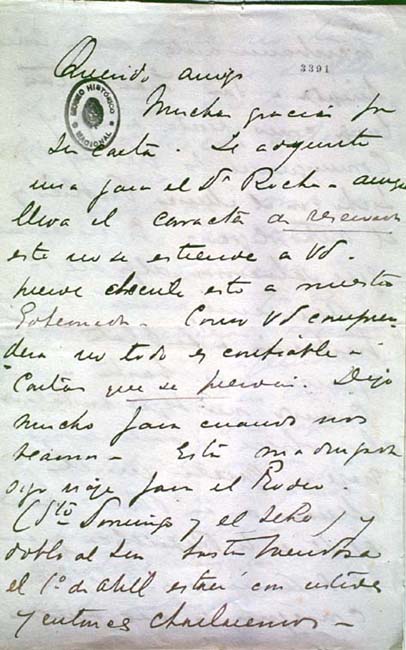 3391
Querido amigo
MUSEO HISTÓRICO NACIONAL
Muchas gracias por
su carta. Le adjunto
una para el Dr Rocha - aunque
lleva el caracter de reservada
esto no se estiende a Vd.
puede esto a nuestro
Gobernador - Como Vd compren
dera no todo es confiable a
Cartas que se pierden. Dejo
mucho para cuando nos
veamos - Esta madrugada
sigo viaje para el
(Sto Domingo y el ) y
doblo al Sur hasta Mendoza
el 1º de Abril estaré con ustedes
y entonces charlaremos -